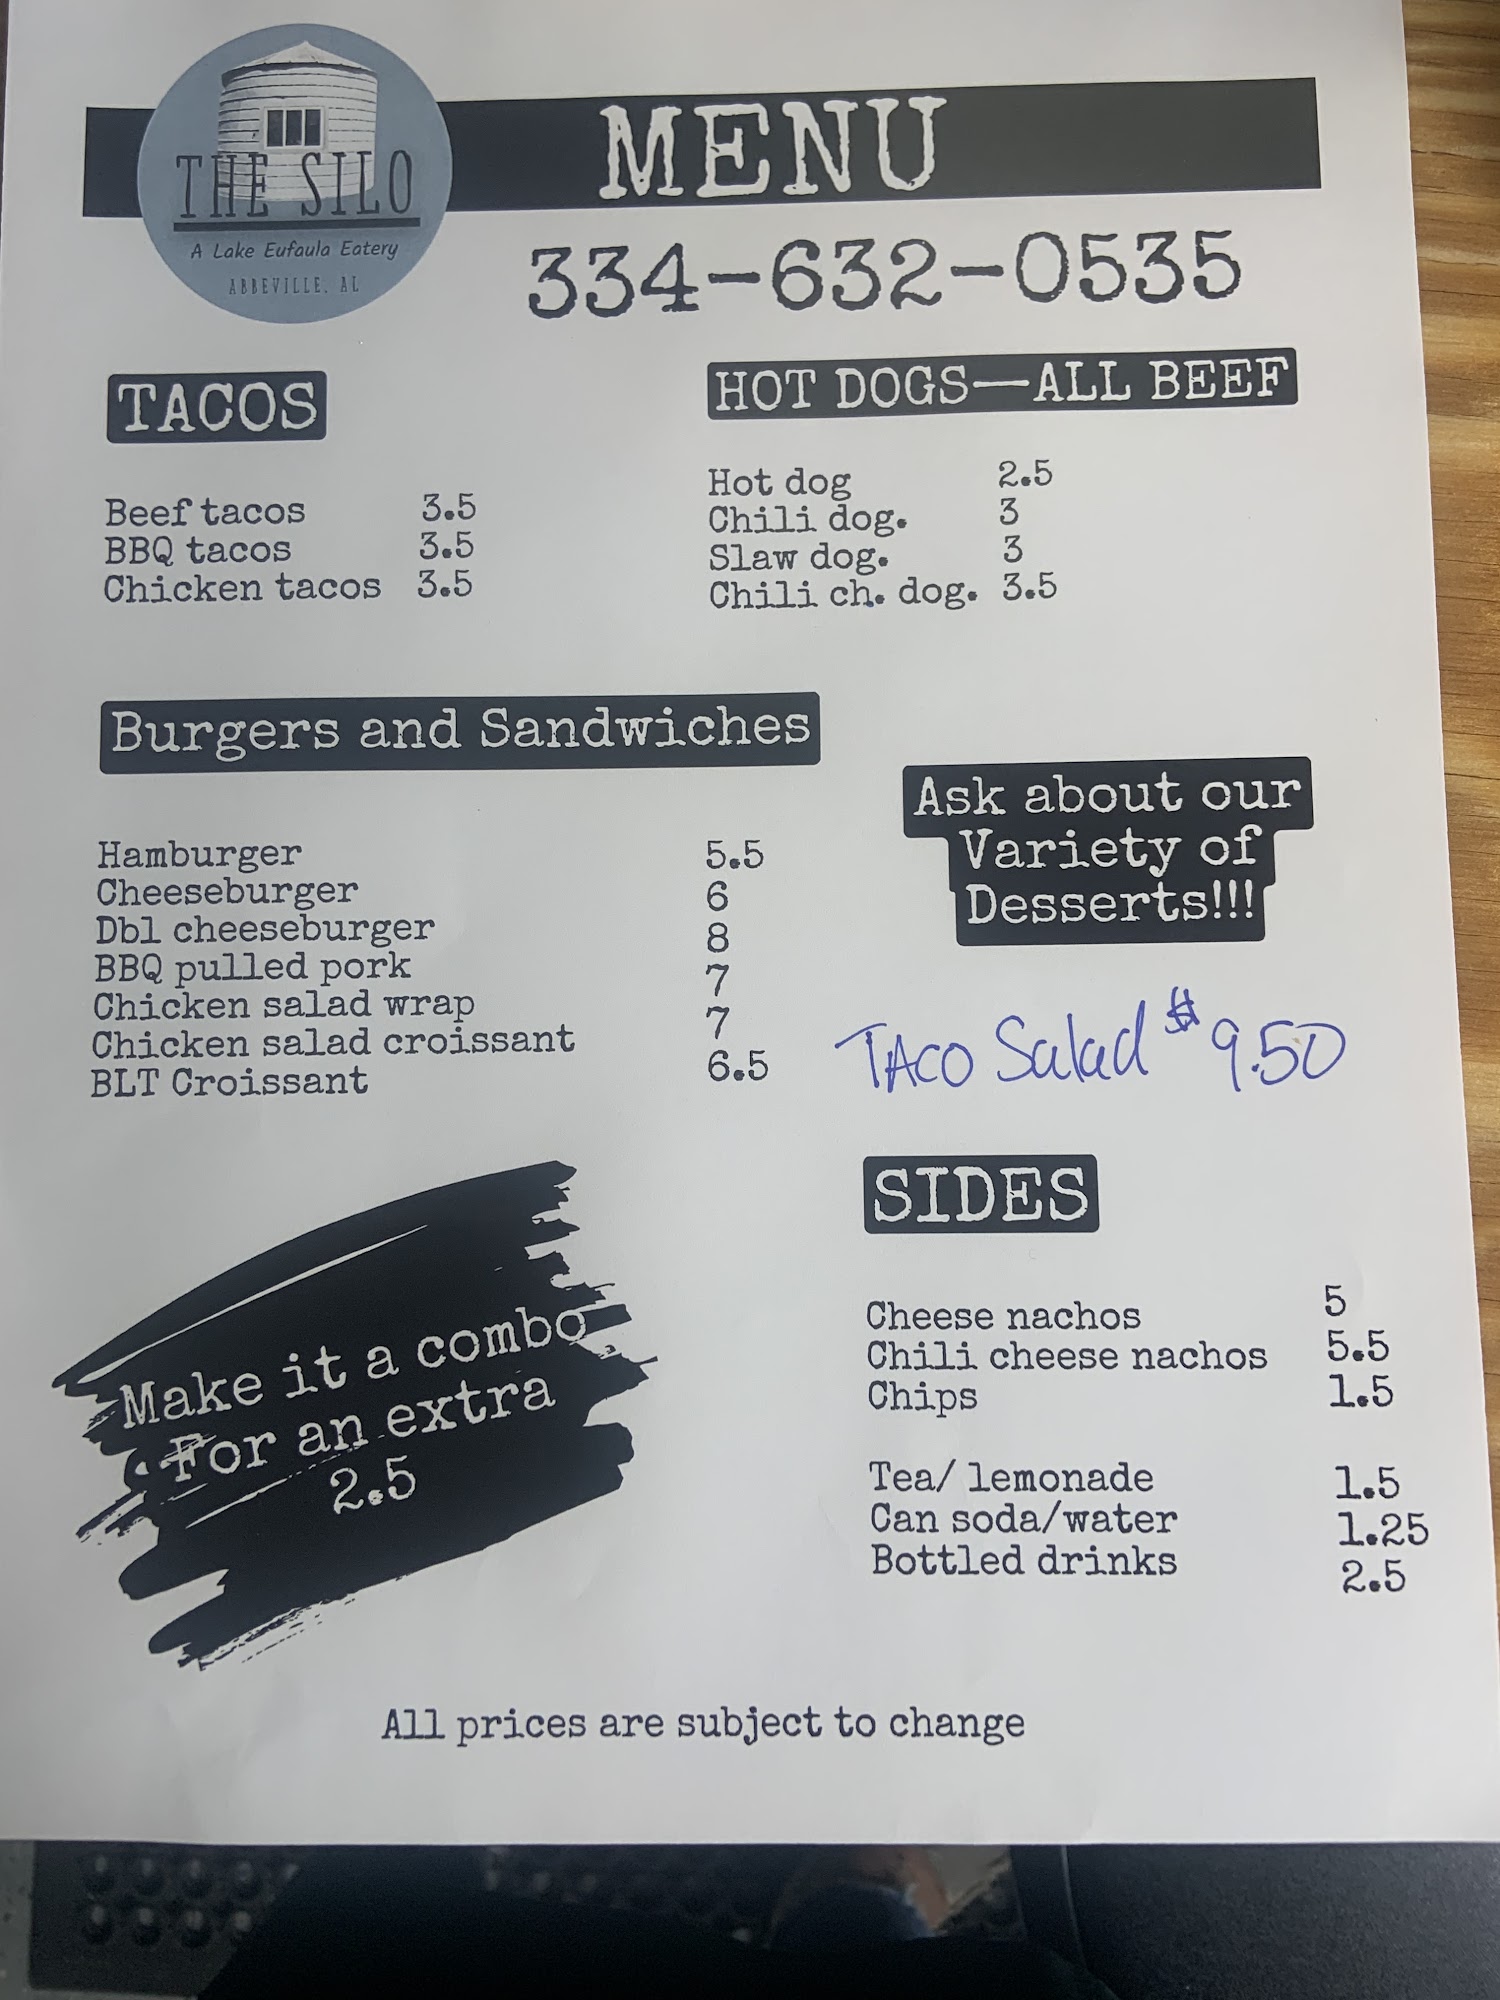 THE SILO
A Lake Eufaula Eatery
ABBEVILLE, AL
MENU
334-632-0535
TACOS
Beef tacos 3.5
BBQ tacos 3.5
Chicken tacos 3.5
HOT DOGS—ALL BEEF
Hot dog 2.5
Chili dog. 3
Slaw dog. 3
Chili ch. dog. 3.5
Burgers and Sandwiches
Hamburger 5.5
Cheeseburger 6
Dbl cheeseburger 8
BBQ pulled pork 7
Chicken salad wrap 7
Chicken salad croissant 6.5
BLT Croissant
Ask about our
Variety of
Desserts!!!
TACO Salad $9.50
SIDES
Cheese nachos 5
Chili cheese nachos 5.5
Chips 1.5
Tea/ lemonade 1.5
Can soda/water 1.25
Bottled drinks 2.5
Make it a combo
For an extra
2.5
All prices are subject to change